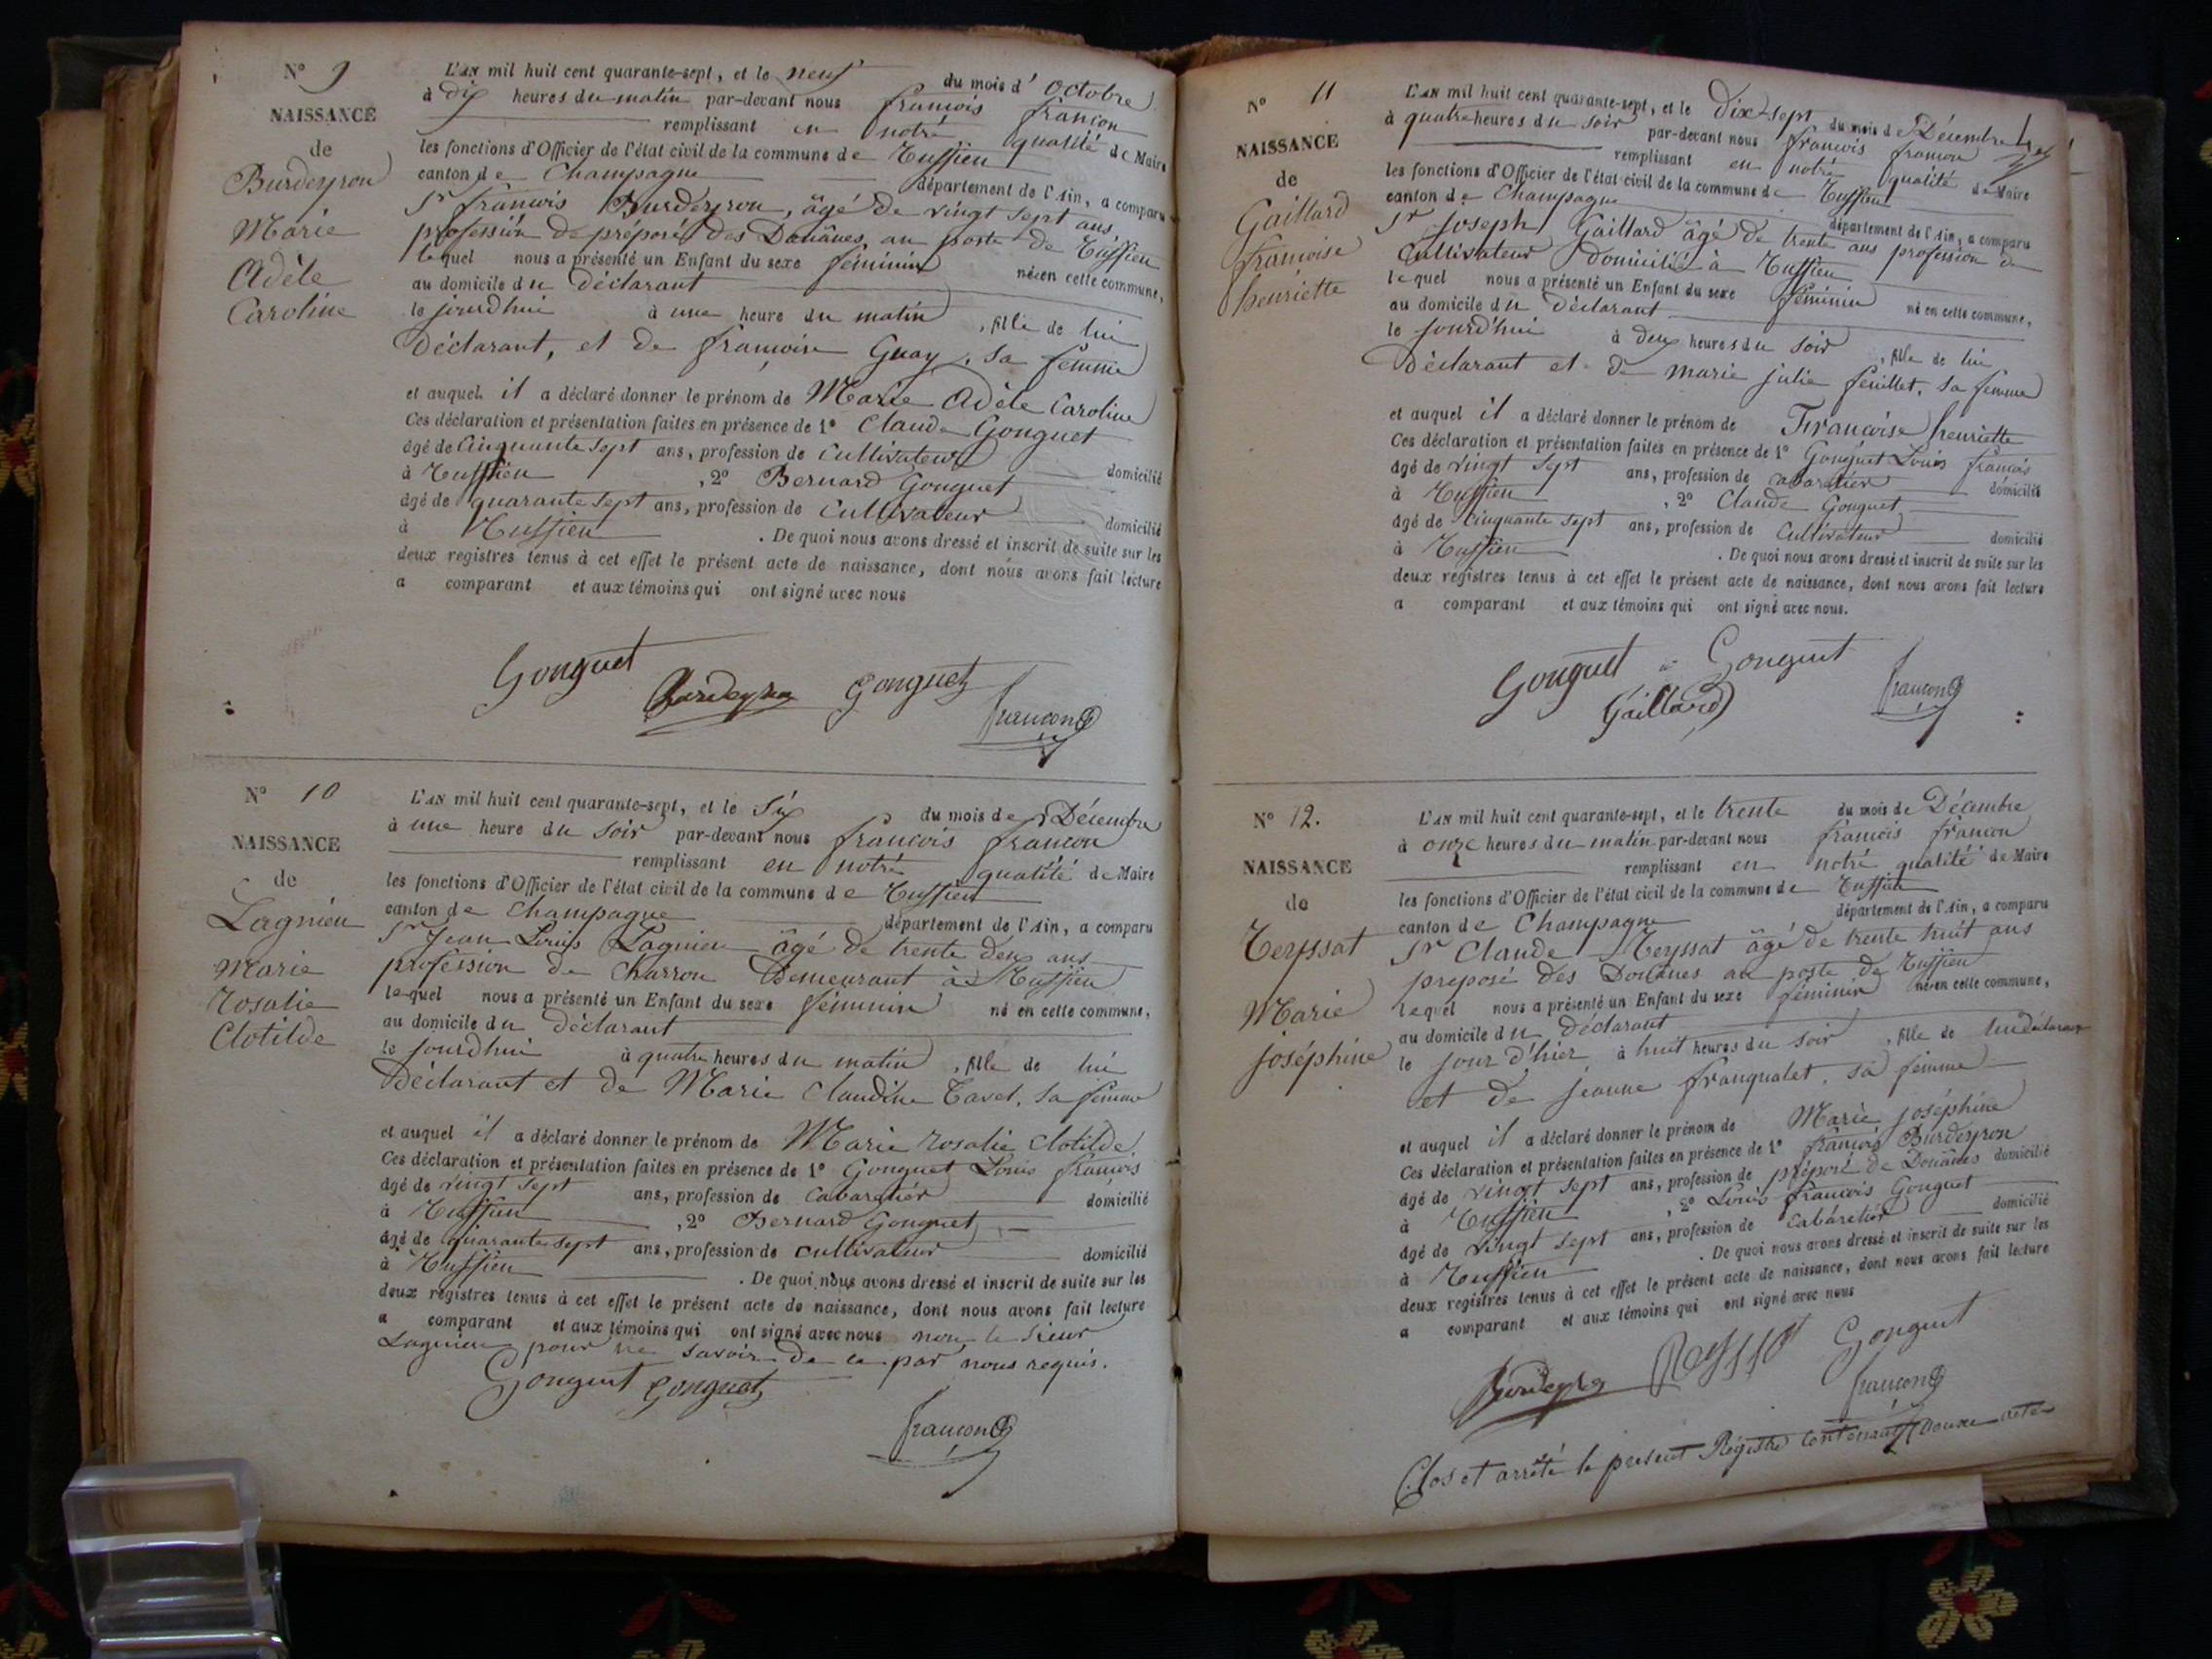 N° 9
NAISSANCE
de
Burdeyron
Marie
Adèle
Caroline
L'AN mil huit cent quarante-sept, et le neuf du mois d' Octobre
à dix heures du matin par-devant nous francois francon
remplissant en notre qualité de Maire
les fonctions d'Officier de l'état civil de la commune de Tussieu
canton de Champagne département de l'Ain, a comparu
Sr francois Burdeyron, âgé de vingt sept ans,
profession de préposé des Douânes, au poste de Tussieu
lequel nous a présenté un Enfant du sexe féminin né en cette commune,
au domicile du déclarant
le jourdhui à une heure du matin, fille de lui
déclarant, et de francoise Guay, sa femme
et auquel il a déclaré donner le prénom de Marie Adèle Caroline
Ces déclaration et présentation faites en présence de 1° Claude Gonguet
âgé de Cinquante sept ans, profession de Cultivateur domicilié
à Tussieu, 2° Bernard Gonguet
âgé de quarante sept ans, profession de Cultivateur domicilié
à Tussieu. De quoi nous avons dressé et inscrit de suite sur les
deux registres tenus à cet effet le présent acte de naissance, dont nous avons fait lecture
a comparant et aux témoins qui ont signé avec nous
Gonguet Burdeyron Gonguet
francon
N° 10
NAISSANCE
de
Lagnieu
Marie
Rosalie
Clotilde
L'AN mil huit cent quarante-sept, et le Six du mois de Décembre
à une heure du soir par-devant nous francois francon
remplissant en notre qualité de Maire
les fonctions d'Officier de l'état civil de la commune de Tussieu
canton de Champagne département de l'Ain, a comparu
Sr Jean Louis Lagnieu âgé de trente deux ans
profession de Charron demeurant à Tussieu
lequel nous a présenté un Enfant du sexe féminin né en cette commune,
au domicile du déclarant
le jourdhui à quatre heures du matin, fille de lui
déclarant et de Marie Claudine Tavel, sa femme
et auquel il a déclaré donner le prénom de Marie Rosalie Clotilde
Ces déclaration et présentation faites en présence de 1° Gonguet Louis francois
âgé de vingt sept ans, profession de Cabaretier domicilié
à Tussieu, 2° Bernard Gonguet
âgé de quarante sept ans, profession de cultivateur domicilié
à Tussieu. De quoi nous avons dressé et inscrit de suite sur les
deux registres tenus à cet effet le présent acte de naissance, dont nous avons fait lecture
a comparant et aux témoins qui ont signé avec nous non le sieur
Lagnieu pour ne savoir de ce par nous requis.
Gonguet Gonguet
francon
N° 11
NAISSANCE
de
Gaillard
francoise
henriette
L'AN mil huit cent quarante-sept, et le Dix-sept du mois de Décembre
à quatre heures du soir par-devant nous francois francon
remplissant en notre qualité de Maire
les fonctions d'Officier de l'état civil de la commune de Tussieu
canton de Champagne département de l'Ain, a comparu
Sr Joseph Gaillard âgé de trente ans profession de
Cultivateur domicilié à Tussieu
lequel nous a présenté un Enfant du sexe féminin né en cette commune,
au domicile du déclarant
le jourd'hui à deux heures du soir, fille de lui
déclarant et de marie julie feuillet, sa femme
et auquel il a déclaré donner le prénom de Francoise henriette
Ces déclaration et présentation faites en présence de 1° Gonguet Louis francois
âgé de vingt sept ans, profession de cabaretier domicilié
à Tussieu, 2° Claude Gonguet
âgé de cinquante sept ans, profession de Cultivateur domicilié
à Tussieu. De quoi nous avons dressé et inscrit de suite sur les
deux registres tenus à cet effet le présent acte de naissance, dont nous avons fait lecture
a comparant et aux témoins qui ont signé avec nous.
Gonguet Gonguet
Gaillard francon
N° 12.
NAISSANCE
de
Teyssat
Marie
joséphine
L'AN mil huit cent quarante-sept, et le trente du mois de Décembre
à onze heures du matin par-devant nous francois francon
remplissant en notre qualité de Maire
les fonctions d'Officier de l'état civil de la commune de Tussieu
canton de Champagne département de l'Ain, a comparu
Sr Claude Teyssat âgé de trente huit ans
preposé des Douânes au poste de Tussieu
lequel nous a présenté un Enfant du sexe féminin né en cette commune,
au domicile du déclarant
le jour d'hier à huit heures du soir, fille de lui déclarant
et de jeanne franqualet, sa femme
et auquel il a déclaré donner le prénom de Marie joséphine
Ces déclaration et présentation faites en présence de 1° francois Burdeyron
âgé de vingt sept ans, profession de préposé de Douânes domicilié
à Tussieu, 2° Louis francois Gonguet
âgé de vingt sept ans, profession de Cabaretier domicilié
à Tussieu. De quoi nous avons dressé et inscrit de suite sur les
deux registres tenus à cet effet le présent acte de naissance, dont nous avons fait lecture
a comparant et aux témoins qui ont signé avec nous
Burdeyron Gonguet
francon
Clos et arrêté le present Régistre contenant douze acte